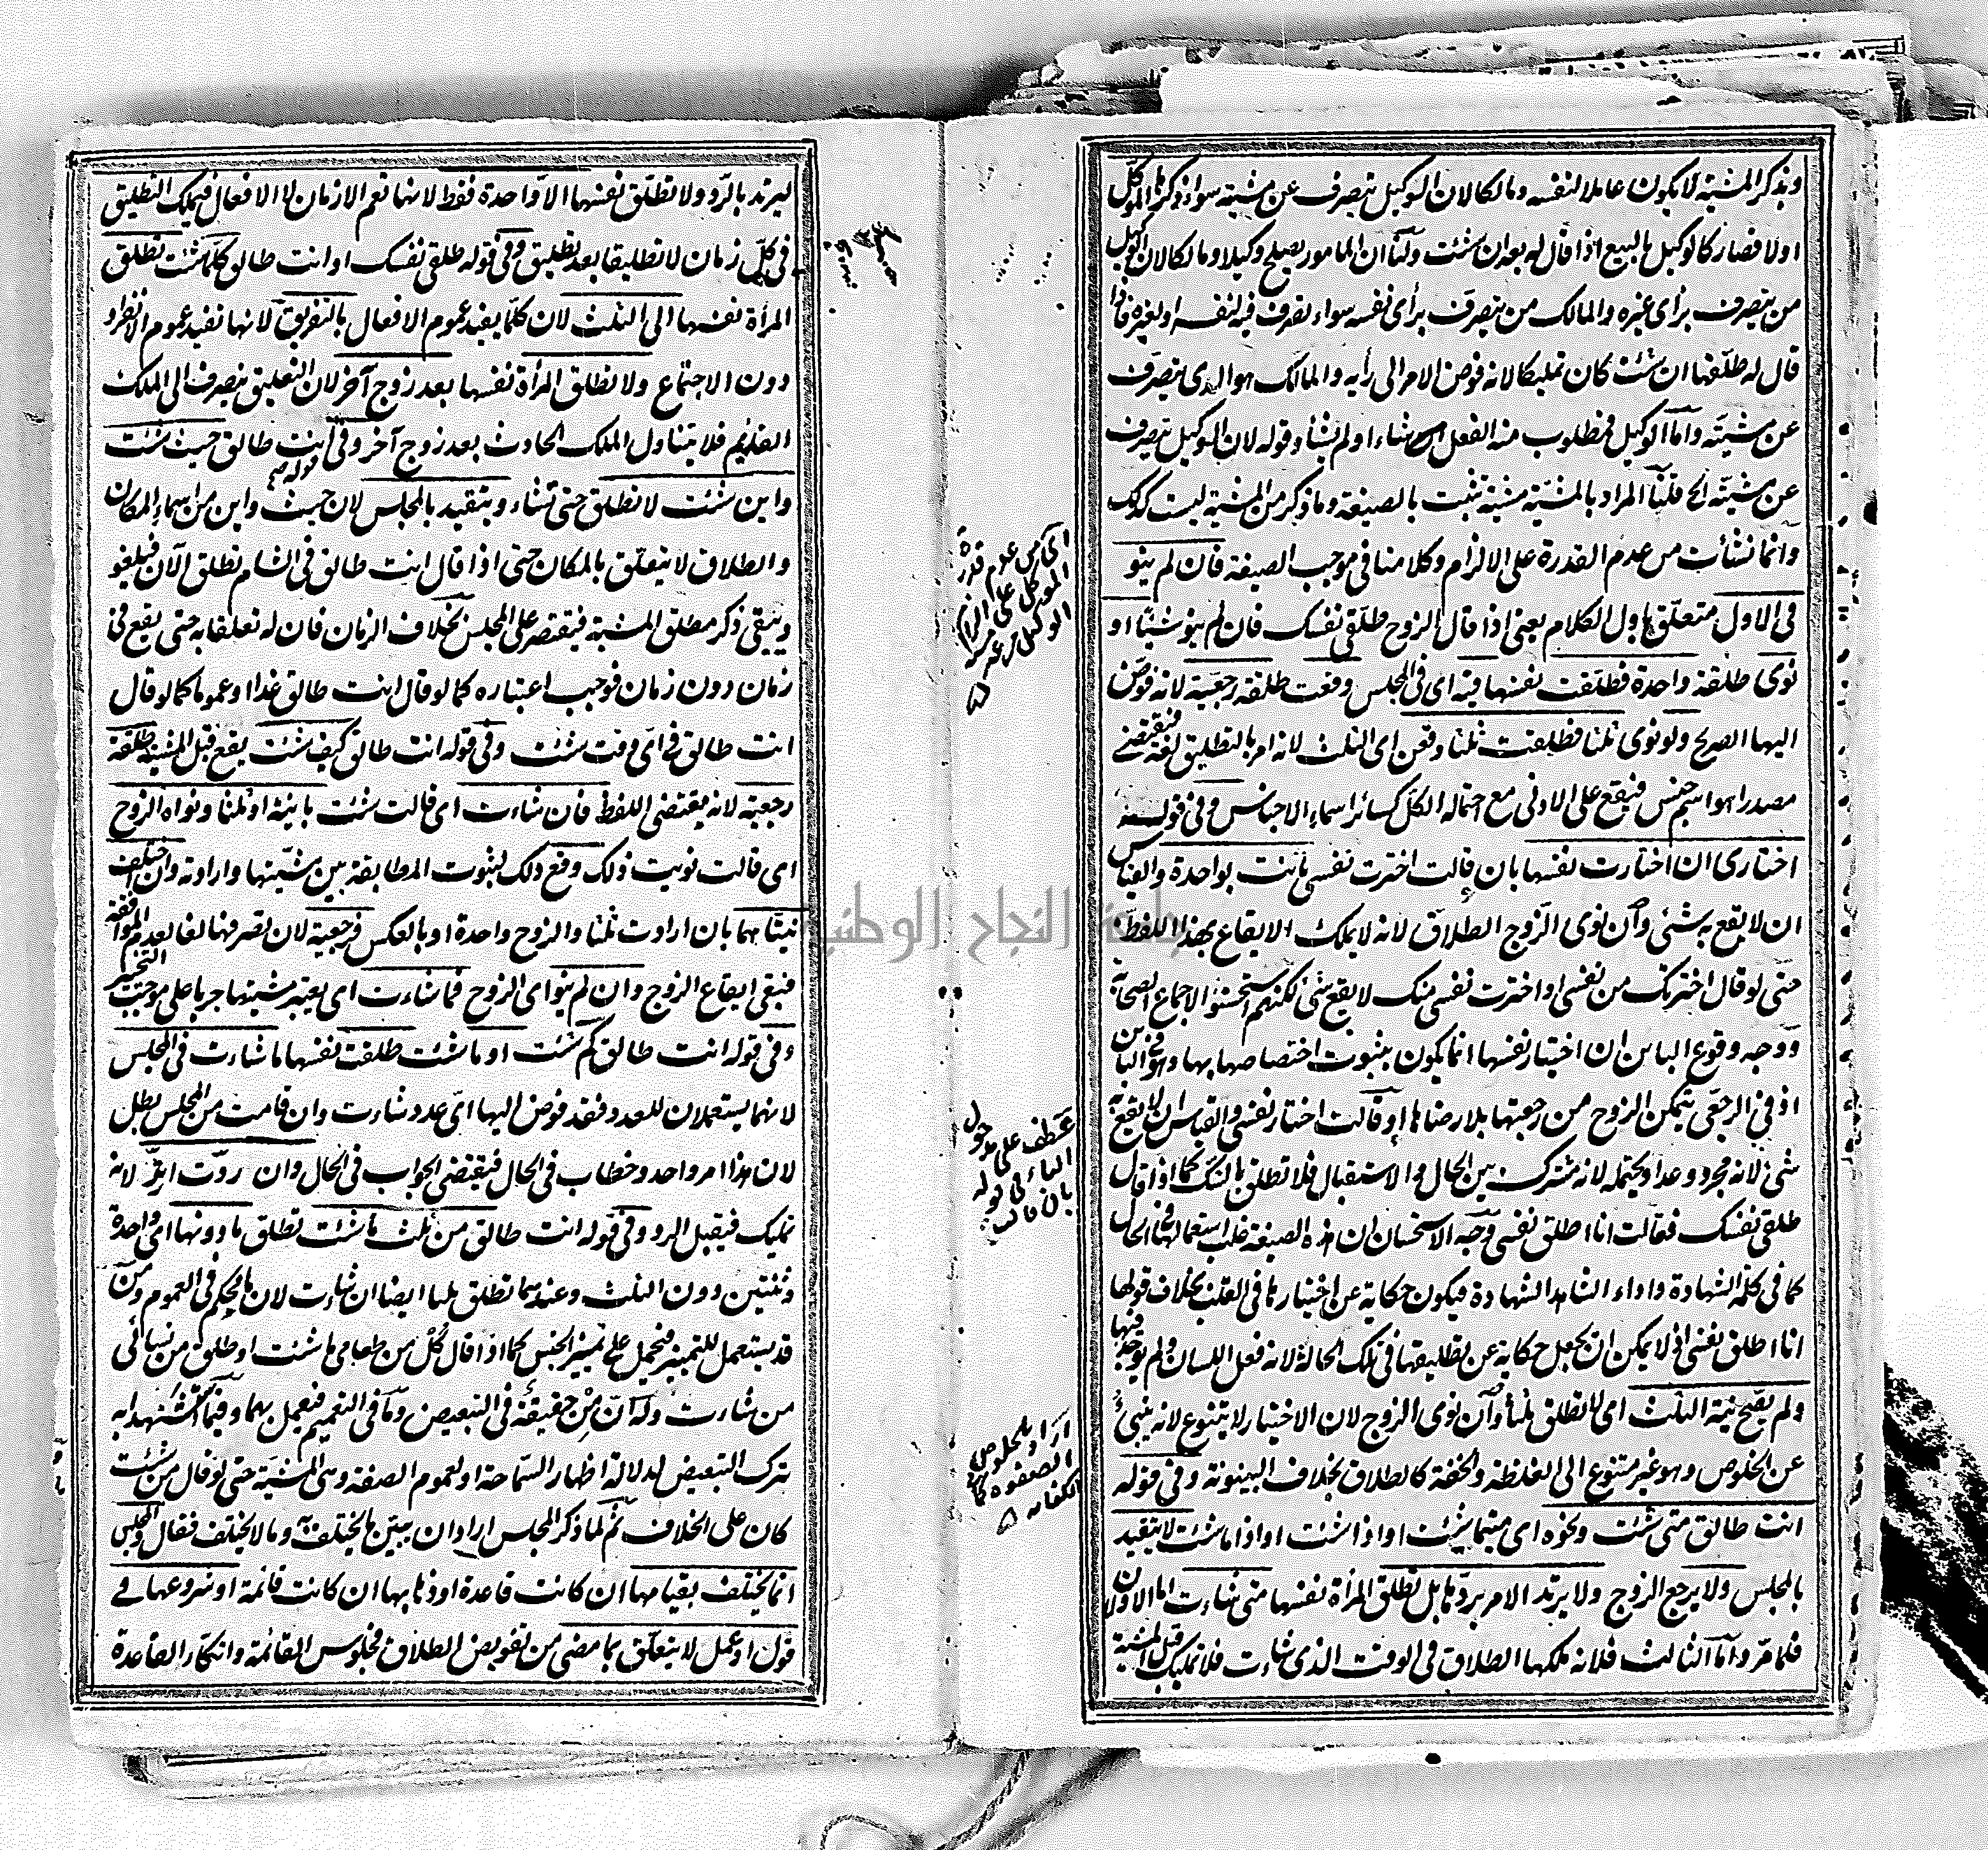 وبذكر المشية لا يكون عاملا لنفسه ومالكا لان الوكيل يتصرف عن مشيته سواء ذكرها الموكل
اولا فصار كالوكيل بالبيع اذا قال له بعه ان شئت ولنا ان المامور يصلح وكيلا ومالكا لان الوكيل
من يتصرف برأى غيره والمالك من يتصرف برأى نفسه سواء تصرف فيه لنفسه او لغيره فاذا
قال له طلقها ان شئت كان تمليكا لانه فوض الامر الى رأيه والمالك هو الذى يتصرف
عن مشيته واما الوكيل فمطلوب منه الفعل شاء او لم يشأ وقوله لان الوكيل يتصرف
عن مشيته الخ قلنا المراد بالمشية مشية تثبت بالصيغة وما ذكر من المشية ليست كذلك
وانما نشأت من عدم القدرة على الالزام وكلامنا فى موجب الصيغة فان لم ينو
فى الاول متعلق باول الكلام يعنى اذا قال الزوج طلقى نفسك فان لم ينو شيئا او
نوى طلقة واحدة فطلقت نفسها فيه اى فى المجلس وقعت طلقة رجعية لانه فوض
اليها الصريح ولو نوى ثلثا فطلقت ثلثا وقعن اى الثلث لانه امر بالتطليق لغة فيقتضى
مصدرا هو اسم جنس فيقع على الادنى مع احتماله الكل كسائر اسماء الاجناس وفى قوله
اختارى ان اختارت نفسها بان قالت اخترت نفسى بانت بواحدة والقياس
ان لا يقع به شئ وان نوى الزوج الطلاق لانه لا يملك الايقاع بهذا اللفظ
حتى لو قال اخترتك من نفسى او اخترت نفسى منك لا يقع شئ لكنهم استحسنوا لاجماع الصحابة
ووجه وقوع البائن ان اختيار نفسها انما يكون بثبوت اختصاصها بها وهو فى البائن
اذ فى الرجعى يتمكن الزوج من رجعتها بلا رضاها او قالت اختار نفسى والقياس ان لا يقع به
شئ لانه مجرد وعد او يحتمله لانه مشترك بين الحال والاستقبال فلا تطلق بالشك كما اذا قال
طلقى نفسك فقالت انا اطلق نفسى وجه الاستحسان ان هذه الصيغة غلب استعمالها فى الحال
كما فى كلمة الشهادة واداء الشاهد الشهادة فيكون حكاية عن اختيارها فى القلب بخلاف قولها
انا اطلق نفسى اذ لا يمكن ان يجعل حكاية عن تطليقها فى تلك الحالة لانه فعل اللسان ولم يوجد فيها
ولم يصح نية الثلث اى لا تطلق ثلثا وان نوى الزوج لان الاختيار لا يتنوع لانه ينبئ
عن الخلوص وهو غير متنوع الى الغلظة والخفة كالطلاق بخلاف البينونة وفى قوله
انت طالق متى شئت ونحوه اى متى ما شئت او اذا شئت او اذا ما شئت لا يتقيد
بالمجلس ولا يرجع الزوج ولا يرتد الامر بردها بل تطلق المرأة نفسها متى شاءت اما الاولان
فلما مر واما الثالث فلانه ملكها الطلاق فى الوقت الذى شاءت فلا تمليك قبل المشية
اى من عدم قدرة
الموكل على الزام
الوكيل
عطف على مدخول
الباء فى قوله
بان قالت
اراد بالخلوص
الصفوة كما
الكفاية
ليرتد بالرد ولا تطلق نفسها الا واحدة فقط لانها تعم الازمان لا الافعال فيملك التطليق
فى كل زمان لا تطليقا بعد تطليق وفى قوله طلقى نفسك او انت طالق كلما شئت تطلق
المرأة نفسها الى الثلث لان كلما يفيد عموم الافعال بالتفريق لانها تفيد عموم الانفراد
دون الاجتماع ولا تطلق المرأة نفسها بعد زوج آخر لان التعليق ينصرف الى الملك
القديم فلا يتناول الملك الحادث بعد زوج آخر وفى قوله انت طالق حيث شئت
واين شئت لا تطلق حتى تشاء ويتقيد بالمجلس لان حيث واين من اسماء المكان
والطلاق لا يتعلق بالمكان حتى اذا قال انت طالق فى الشام تطلق الآن فيلغو
ويبقى ذكر مطلق المشية فيقتصر على المجلس بخلاف الزمان فان له تعلقا به حتى يقع فى
زمان دون زمان فوجب اعتباره كما لو قال انت طالق غدا او عموما كما لو قال
انت طالق فى اى وقت شئت وفى قوله انت طالق كيف شئت يقع قبل المشية طلقة
رجعية لانه يقتضى اللفظ فان شاءت اى قالت شئت باينة او ثلثا ونواه الزوج
اى قالت نويت ذلك وقع ذلك لثبوت المطابقة بين مشيتها وارادته وان اختلف
نيتاهما بان ارادت ثلثا والزوج واحدة او بالعكس فرجعية لان تصرفها لغا لعدم الموافقة
فبقى ايقاع الزوج وان لم ينو اى الزوج فما شاءت اى يعتبر مشيتها جريا على موجب التخيير
وفى قوله انت طالق كم شئت او ما شئت طلقت نفسها ما شاءت فى المجلس
لانهما يستعملان للعدد فقد فوض اليها اى عدد شاءت وان قامت من المجلس بطل
لان هذا امر واحد وخطاب فى الحال فيقتضى الجواب فى الحال وان ردت ارتد لانه
تمليك فيقبل الرد وفى قوله انت طالق من ثلث ما شئت تطلق ما دونها اى واحدة
وثنتين دون الثلث وعندهما تطلق ثلثا ايضا ان شاءت لان ما محكم فى العموم ومن
قد يستعمل للتمييز فيحمل على تمييز الجنس كما اذا قال كل من طعامى ما شئت او طلق من نسائى
من شاءت وله ان من حقيقة فى التبعيض وما فى التعميم فيعمل بهما وفيما استشهدا به
ترك التبعيض لدلالة اظهار السماحة او لعموم الصفة وهى المشية حتى لو قال من شئت
كان على الخلاف ثم لما ذكر المجلس اراد ان يبين ما يختلف به وما لا يختلف فقال والمجلس
انما يختلف بقيامها ان كانت قاعدة او ذهابها ان كانت قائمة او شروعها فى
قول او عمل لا يتعلق بما مضى من تفويض الطلاق فجلوس القائمة واتكاء القاعدة
جامعة النجاح الوطنية